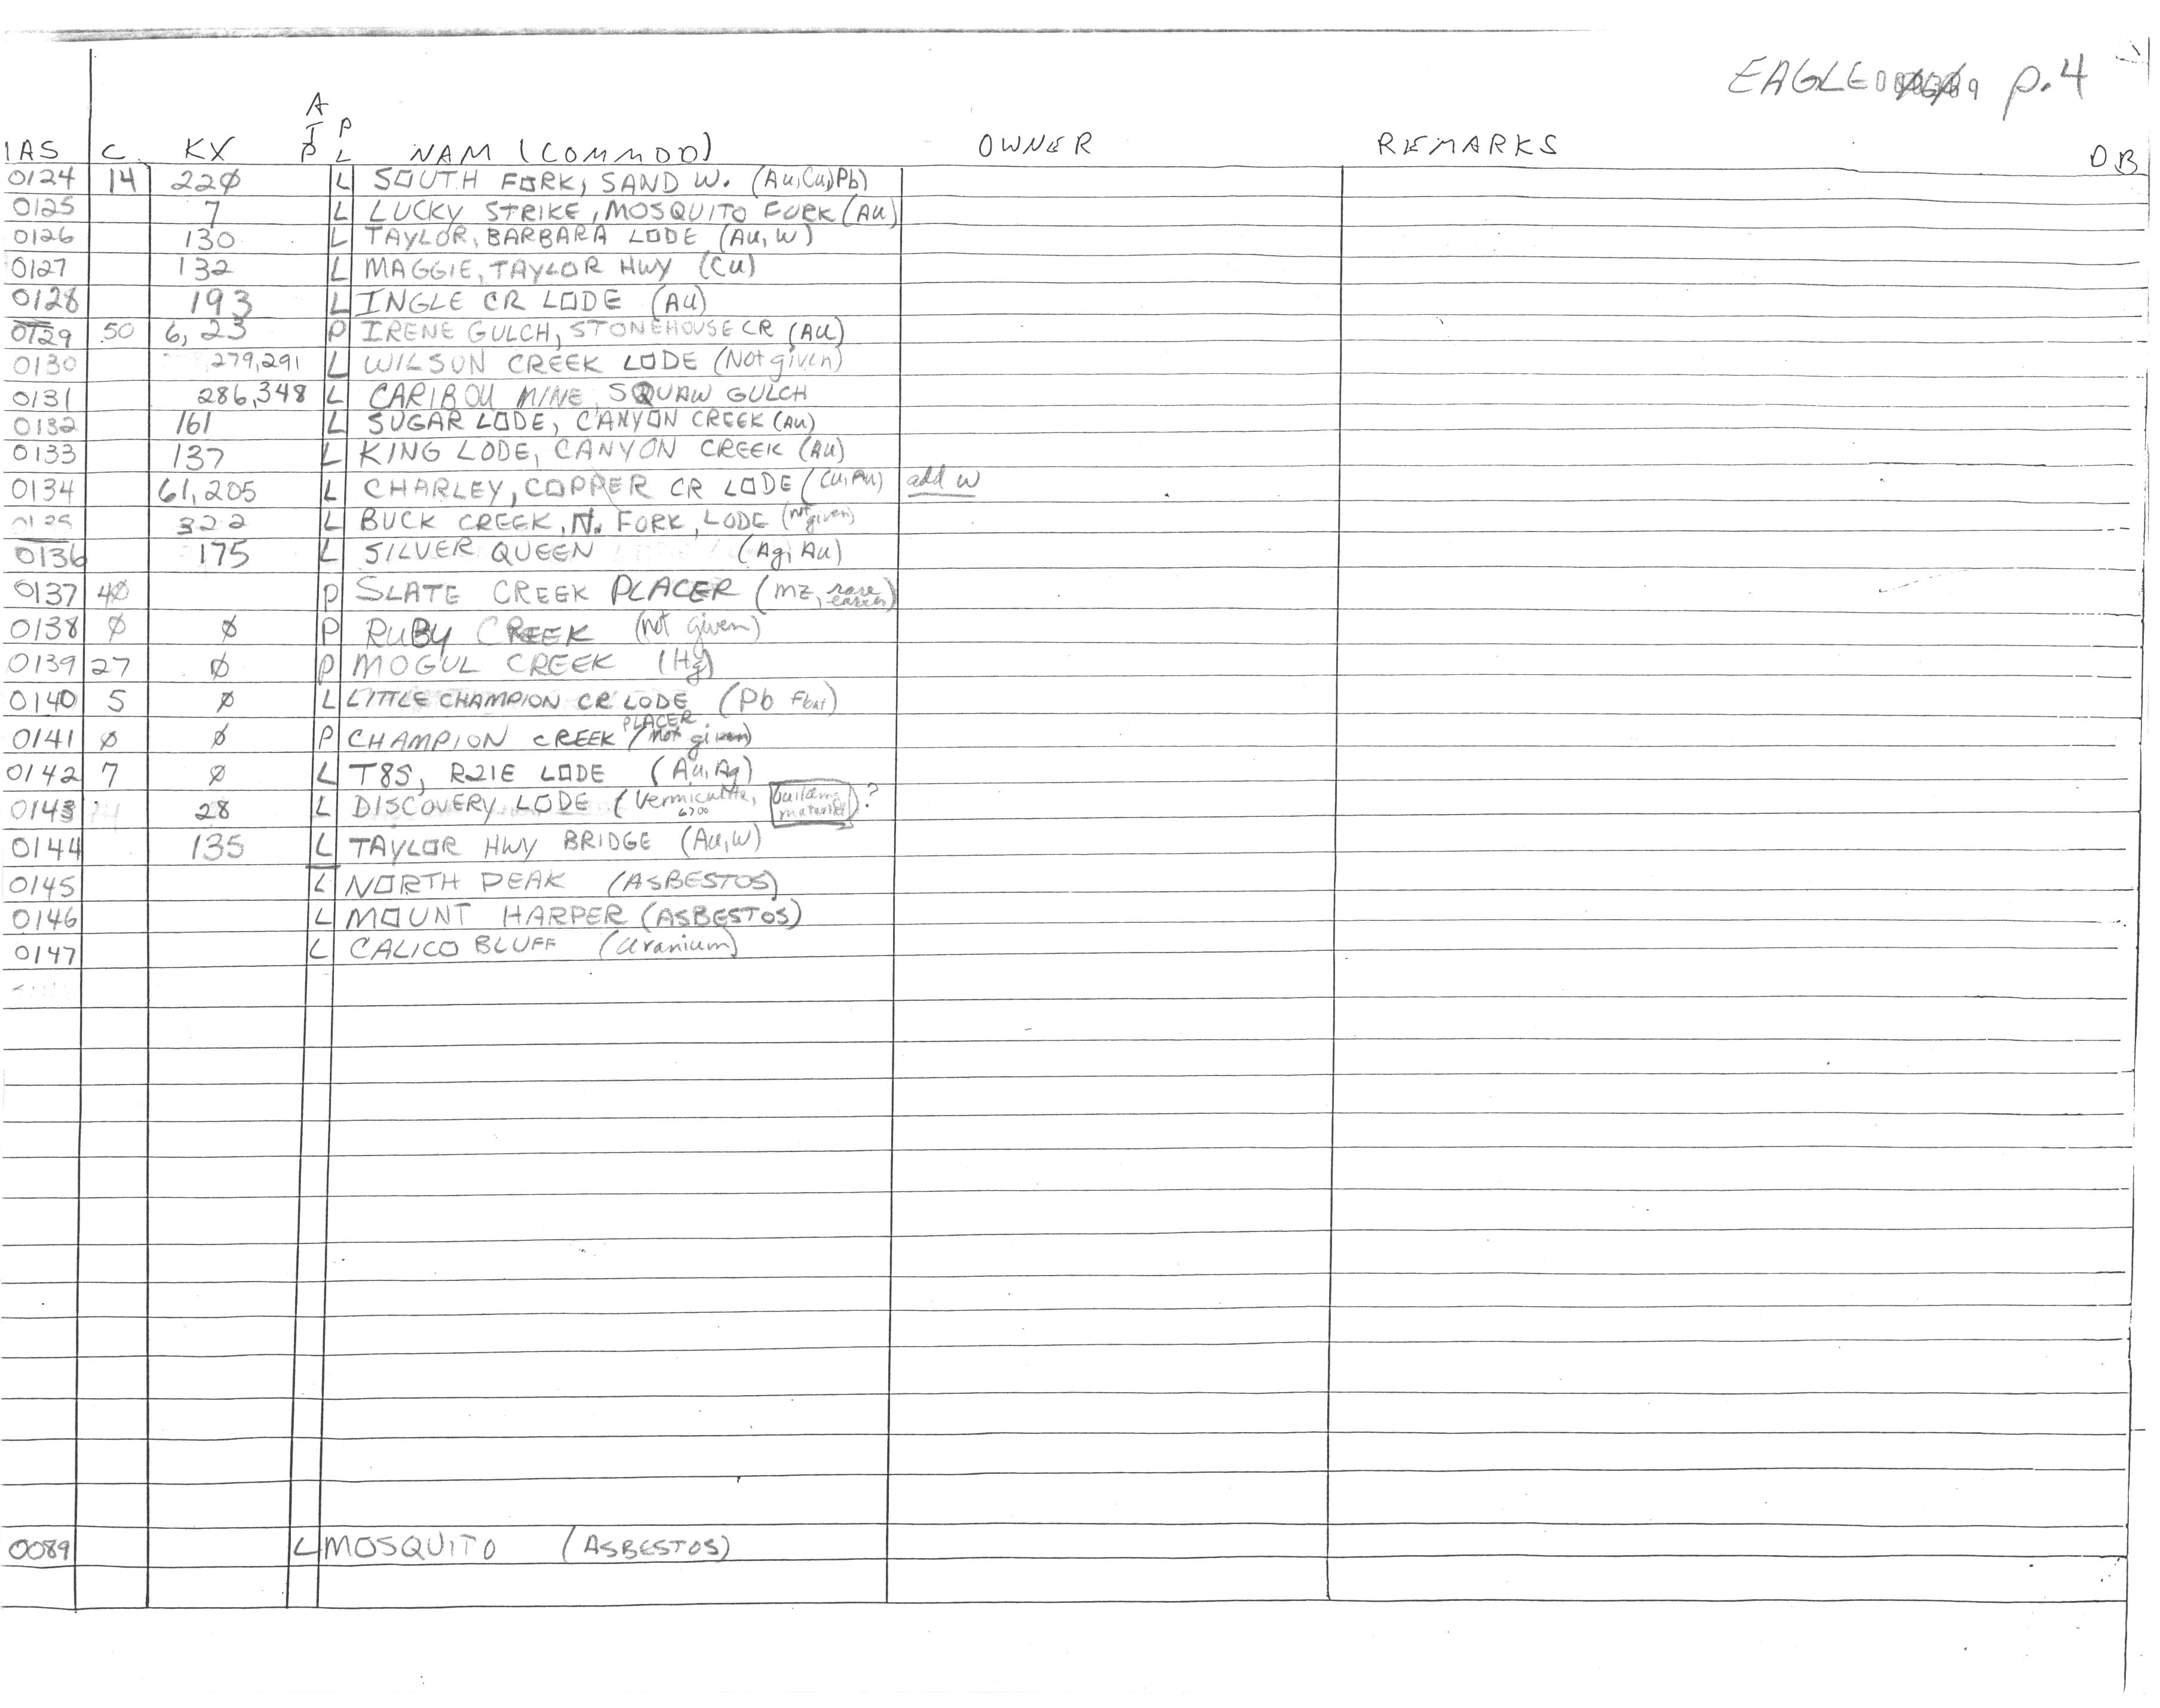 EAGLE p.4
A
I P
IAS C KX P L NAM (COMMOD) OWNER REMARKS DB
0124 14 22Ø L SOUTH FORK, SAND W. (Au, Cu, Pb)
0125 7 L LUCKY STRIKE, MOSQUITO FORK (Au)
0126 130 L TAYLOR, BARBARA LODE (Au, W)
0127 132 L MAGGIE, TAYLOR HWY (Cu)
0128 193 L INGLE CR LODE (Au)
0129 50 6, 23 P IRENE GULCH, STONEHOUSE CR (Au)
0130 279,291 L WILSON CREEK LODE (Not given)
0131 286,348 L CARIBOU MINE, SQUAW GULCH
0132 161 L SUGAR LODE, CANYON CREEK (Au)
0133 137 L KING LODE, CANYON CREEK (Au)
0134 61, 205 L CHARLEY, COPPER CR LODE (Cu, Au) add W
322 L BUCK CREEK, N. FORK, LODE (not given)
0136 175 L SILVER QUEEN (Ag, Au)
0137 4Ø P SLATE CREEK PLACER (mz, rare earth)
0138 Ø Ø P RUBY CREEK (not given)
0139 27 Ø P MOGUL CREEK (Hg)
0140 5 Ø L LITTLE CHAMPION CR LODE (Pb Float)
0141 Ø Ø P CHAMPION CREEK PLACER (not given)
0142 7 Ø L T8S, R21E LODE (Au, Ag)
0143 28 L DISCOVERY LODE (Vermiculite, building materials)?
6700
0144 135 L TAYLOR HWY BRIDGE (Au, W)
0145 L NORTH PEAK (ASBESTOS)
0146 L MOUNT HARPER (ASBESTOS)
0147 L CALICO BLUFF (Uranium)
0089 L MOSQUITO (ASBESTOS)